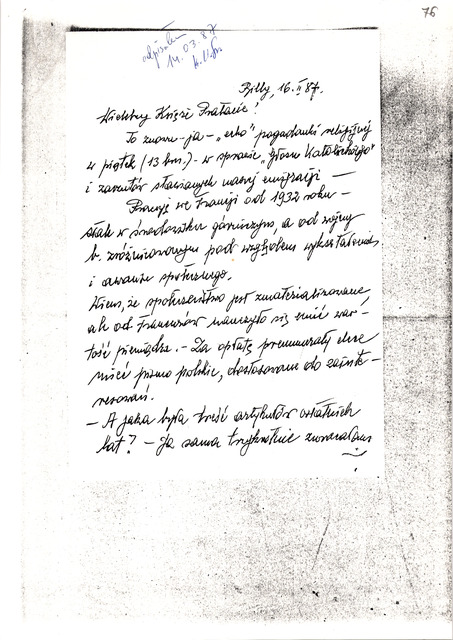 76
odpisałem
14.03.87
Billy, 16.II 87.
Wielebny Księże Prałacie!
To znowu – ja – „echo" pogadanki religijnej
w piątek (13 bm.) – w sprawie „Głosu Katolickiego"
i zarzutów stawianych naszej emigracji –
Pracuję we Francji od 1932 roku –
stale w środowisku górniczym, a od wojny
b. zróżnicowanym pod względem wykształcenia
i awansu społecznego.
Wiem, że społeczeństwo jest zmaterializowane,
ale od Francuzów nauczyło się cenić war-
tość pieniądza. – Za opłatę prenumeraty chce
mieć pismo polskie, dostosowane do zainte-
resowań.
– A jaka była treść artykułów ostatnich
lat? – Ja sama trzykrotnie zwracałam